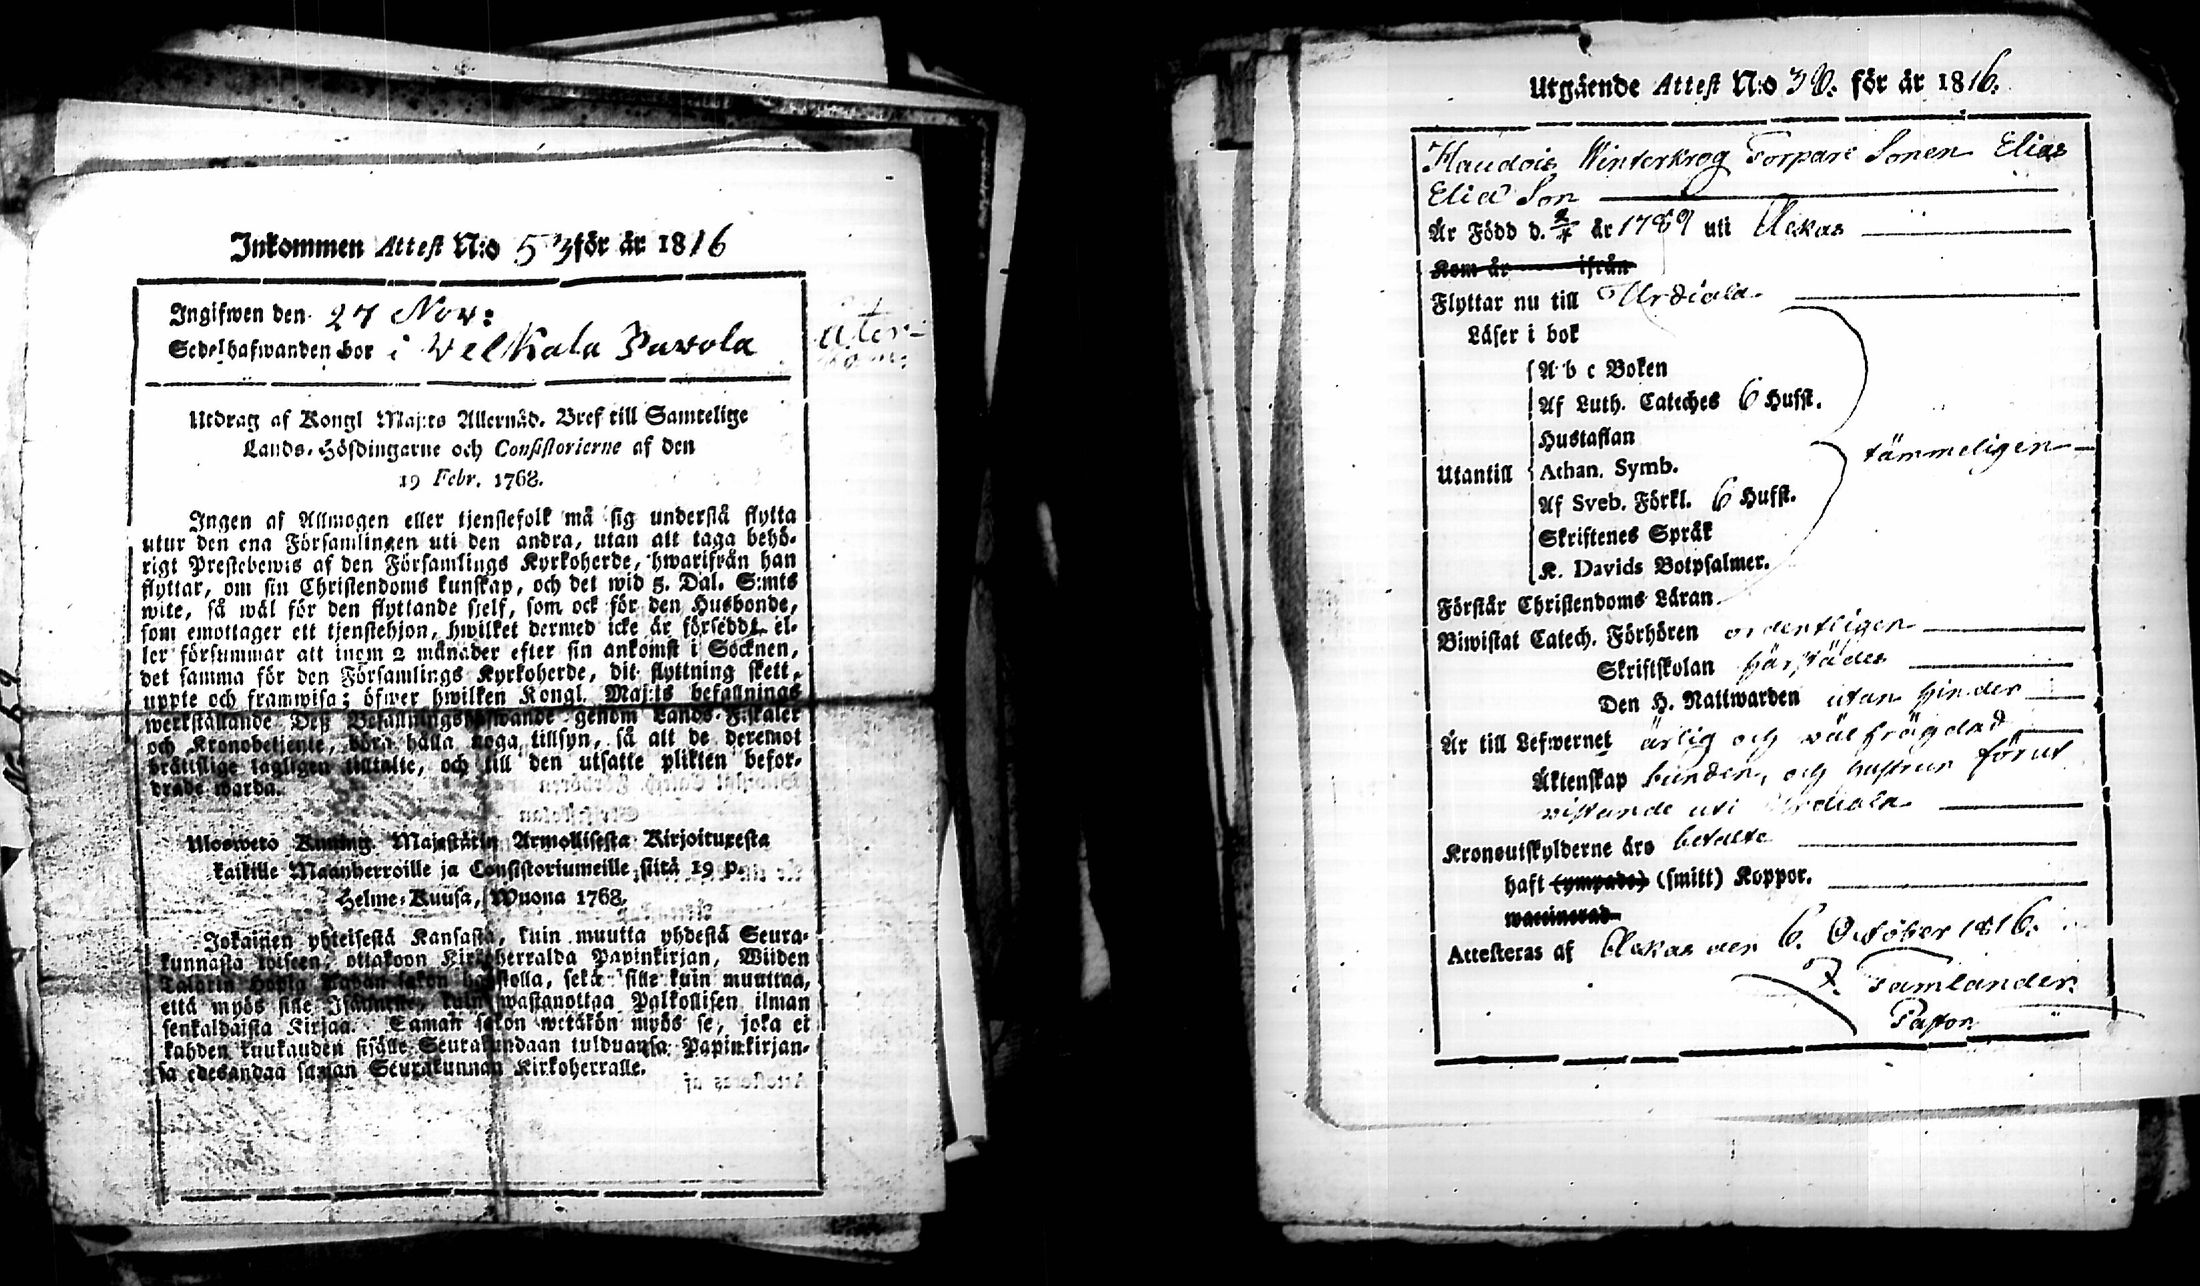 Inkommen Attest N:o 53 för år 1816
Ingifwen den 27 Nov:
Sedelhafwanden bor i Welkala Pavola
åter-
kom:
Utdrag af Kongl Maj:ts Allernåd. Bref till Samtelige
Lands-Höfdingarne och Consistorierne af den
19 Febr. 1768.
Ingen af Allmogen eller tjenstefolk må sig understå flytta
utur den ena Församlingen uti den andra, utan att taga behö-
rigt Prestebewis af den Församlings Kyrkoherde, hwarifrån han
flyttar, om sin Christendoms kunskap, och det wid 5. Dal. S:mts
wite, så wäl för den flyttande sjelf, som ock för den Husbonde,
som emottager ett tjenstehjon, hwilket dermed icke är försedd, el-
ler försummar att inom 2 månader efter sin ankomst i Socknen,
det samma för den Församlings Kyrkoherde, dit flyttning skett,
uppte och framwisa; öfwer hwilken Kongl. Maj:ts befallnings
werkställande Deß Befallningshafwande genom Lands-Fiskaler
och Kronobetjente, böra hålla noga tillsyn, så att de deremot
brätislige lagligen tilltalte, och till den utsatte plikten befor-
drade warda.
Uloswetö Kuning. Majestätin Armollisesta Kirjoituxesta
kaikille Maanherroille ja Consistoriumeille siitä 19 p.
Helme-Kuusa, Wuona 1768.
Jokainen yhteisestä Kansasta, kuin muutta yhdestä Seura-
kunnasta toiseen, ottakoon Kirkoherralda Papinkirjan, Wiiden
Talarin Hopia Rahan sakon haastolla, sekä sille kuin muuttaa,
että myös sille Isännelle, kuin wastanottaa Palkollisen ilman
senkaldaista Kirjaa. Saman sakon wetäkön myös se, joka ei
kahden kuukauden sisälle Seurakundaan tulduansa Papinkirjan-
sa edesandaa saman Seurakunnan Kirkoherralle.
Utgående Attest N:o 30. för år 1816.
Haudois Winterkrog Torpare Sonen Elias
Elias Son
Är Född d. år 1789 uti Uckas
Kom år ifrån
Flyttar nu till Urdiala
Läser i bok
A b c Boken
Af Luth. Cateches 6 Hufst.
Hustaflan
Utantill Athan. Symb. tämmeligen
Af Sveb. Förkl. 6 Hufst.
Skriftenes Språk
K. Davids Botpsalmer.
Förstår Christendoms Läran
Biwistat Catech. Förhören ordentligen
Skriftskolan härstädes
Den H. Nattwarden utan hinder
Är till Lefwernet ärlig och wälfrägdad
Äktenskap bunden, och hustrun förut
vistande uti Urdiala
Kronoutskylderne äro betalte
haft (ympade) (smitt) Koppor.
waccinerad
Attesteras af Uckas den 6. October 1816.
F. Tamlander.
Pastor